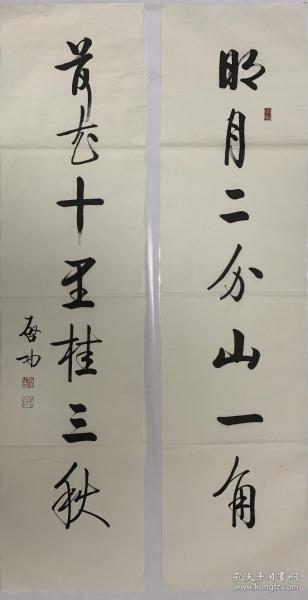 明月二分山一角
荷花十里桂三秋
启功
孔夫子旧书网